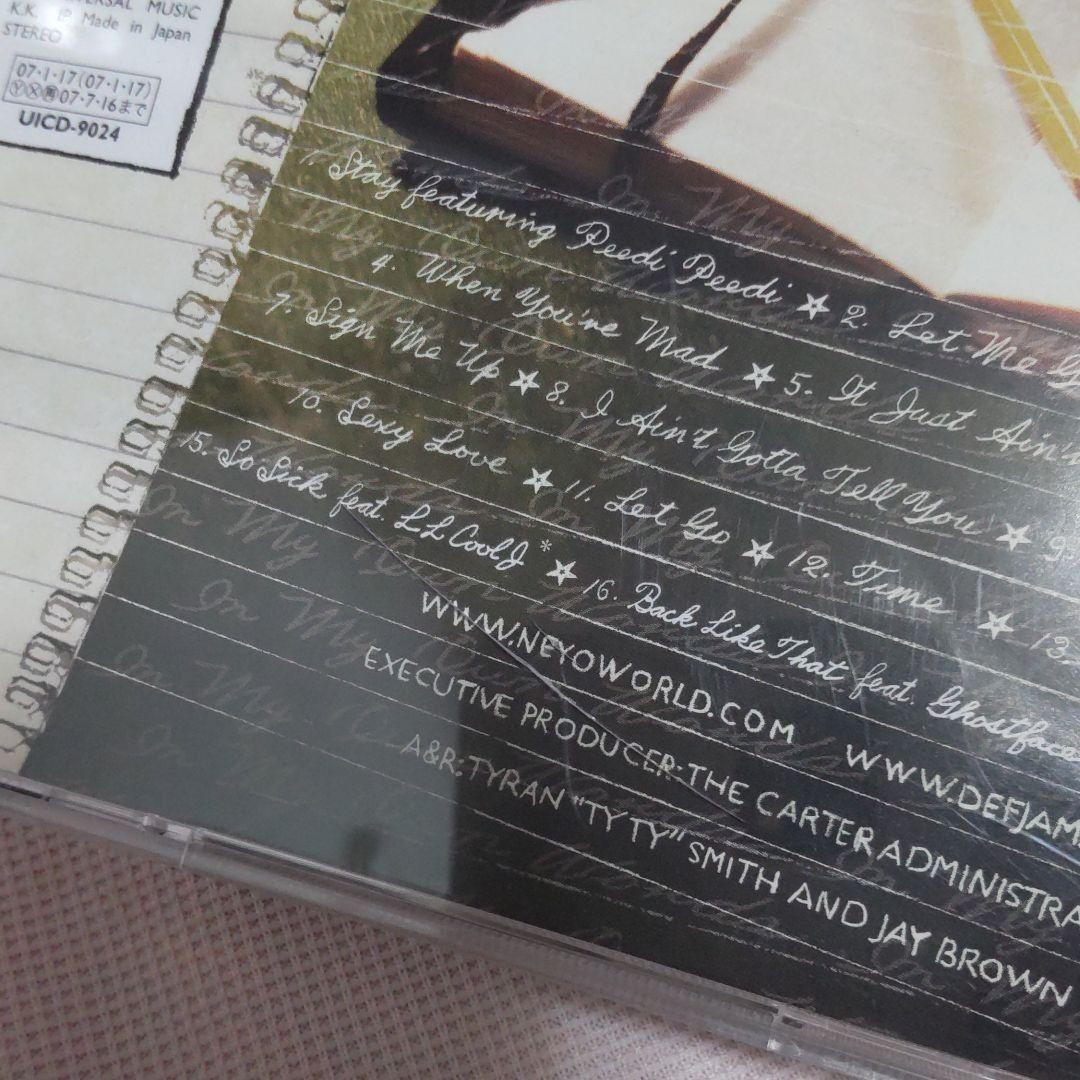 UNIVERSAL MUSIC
K.K. Made in Japan
STEREO
07・1・17(07・1・17)
07・7・16まで
UICD-9024
1. Stay featuring Peedi Peedi ☆ 2. Let Me G
4. When You're Mad ☆ 5. It Just Ain't
7. Sign Me Up ☆ 8. I Ain't Gotta Tell You ☆ 9.
10. Sexy Love ☆ 11. Let Go ☆ 12. Time ☆ 13.
15. So Sick feat. LL Cool J* ☆ 16. Back Like That feat. Ghostface
WWW.NEYOWORLD.COM WWW.DEFJAM
EXECUTIVE PRODUCER: THE CARTER ADMINISTRA
A&R: TYRAN "TY TY" SMITH AND JAY BROWN